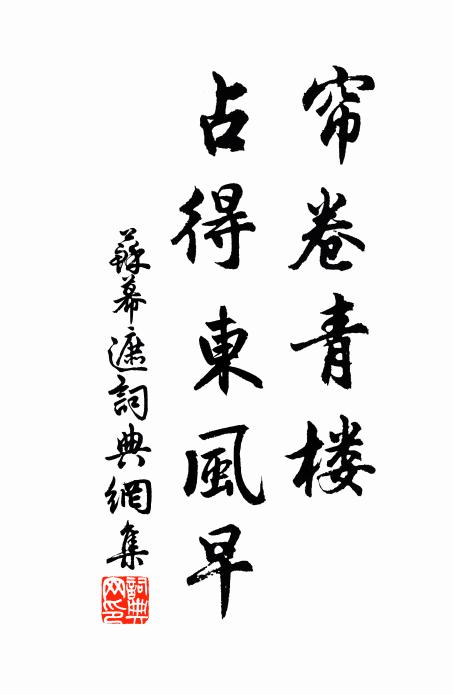 帘卷青楼
占得東風早
蘇幕遮詞典網集
詞典网印